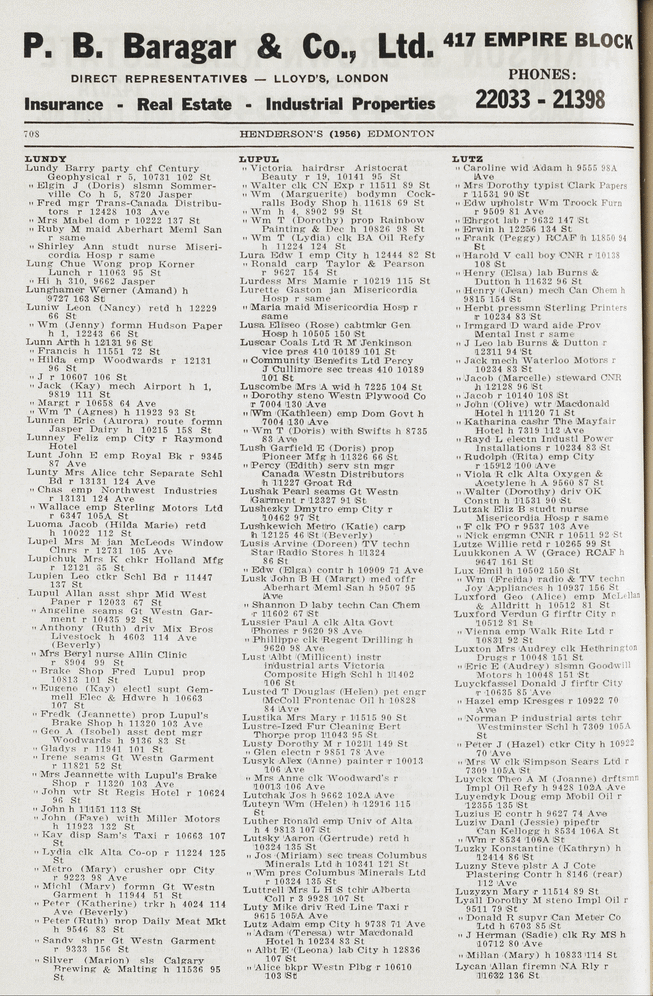 P. B. Baragar & Co., Ltd. 417 EMPIRE BLOCK
DIRECT REPRESENTATIVES — LLOYD'S, LONDON
PHONES:
Insurance - Real Estate - Industrial Properties
22033 - 21398
708
HENDERSON'S (1956) EDMONTON
LUNDY
Lundy Barry party chf Century
Geophysical r 5, 10731 102 St
" Elgin J (Doris) slsmn Sommer-
ville Co h 5, 8720 Jasper
" Fred mgr Trans-Canada Distribu-
tors r 12428 103 Ave
" Mrs Mabel dom r 10222 137 St
" Ruby M maid Aberhart Meml San
r same
" Shirley Ann studt nurse Miseri-
cordia Hosp r same
Lung Chue Wong prop Korner
Lunch r 11063 95 St
" Hi h 310, 9662 Jasper
Lunghamer Werner (Amand) h
9727 163 St
Luniw Leon (Nancy) retd h 12229
66 St
" Wm (Jenny) formn Hudson Paper
h 1, 12243 66 St
Lunn Arth h 12131 96 St
" Francis h 11551 72 St
" Hilda emp Woodwards r 12131
96 St
" J r 10607 106 St
" Jack (Kay) mech Airport h 1,
9819 111 St
" Margt r 10658 64 Ave
" Wm T (Agnes) h 11923 93 St
Lunnen Eric (Aurora) route formn
Jasper Dairy h 10215 158 St
Lunney Feliz emp City r Raymond
Hotel
Lunt John E emp Royal Bk r 9345
87 Ave
Lunty Mrs Alice tchr Separate Schl
Bd r 13131 124 Ave
" Chas emp Northwest Industries
r 13131 124 Ave
" Wallace emp Sterling Motors Ltd
r 6347 105A St
Luoma Jacob (Hilda Marie) retd
h 10022 112 St
Lupel Mrs M jan McLeods Window
Clnrs r 12731 105 Ave
Lupichuk Mrs K chkr Holland Mfg
r 12121 85 St
Lupien Leo ctkr Schl Bd r 11447
137 St
Lupul Allan asst shpr Mid West
Paper r 12033 67 St
" Angeline seams Gt Westn Gar-
ment r 10435 92 St
" Anthony (Ruth) driv Mix Bros
Livestock h 4603 114 Ave
(Beverly)
" Mrs Beryl nurse Allin Clinic
r 8904 99 St
" Brake Shop Fred Lupul prop
10813 101 St
" Eugene (Kay) electl supt Gem-
mell Elec & Hdwre h 10663
107 St
" Fredk (Jeannette) prop Lupul's
Brake Shop h 11320 103 Ave
" Geo A (Isobel) asst dept mgr
Woodwards h 9136 83 St
" Gladys r 11941 101 St
" Irene seams Gt Westn Garment
r 11821 52 St
" Mrs Jeannette with Lupul's Brake
Shop r 11320 103 Ave
" John wtr St Regis Hotel r 10624
96 St
" John h 11151 113 St
" John (Faye) with Miller Motors
h 11923 132 St
" Kay disp Sam's Taxi r 10663 107
St
" Lydia clk Alta Co-op r 11224 125
St
" Metro (Mary) crusher opr City
r 9223 98 Ave
" Michl (Mary) formn Gt Westn
Garment h 11944 51 St
" Peter (Katherine) trkr h 4024 114
Ave (Beverly)
" Peter (Ruth) prop Daily Meat Mkt
h 9546 83 St
" Sandy shpr Gt Westn Garment
r 9333 156 St
" Silver (Marion) sls Calgary
Brewing & Malting h 11536 95
St
LUPUL
" Victoria hairdrsr Aristocrat
Beauty r 19, 10141 95 St
" Walter clk CN Exp r 11511 89 St
" Wm (Marguerite) bodymn Cock-
ralls Body Shop h 11618 69 St
" Wm h 4, 8902 99 St
" Wm T (Dorothy) prop Rainbow
Painting & Dec h 10826 98 St
" Wm T (Lydia) clk BA Oil Refy
h 11224 124 St
Lura Edw I emp City h 12444 82 St
" Ronald carp Taylor & Pearson
r 9627 154 St
Lurdess Mrs Mamie r 10219 115 St
Lurette Gaston jan Misericordia
Hosp r same
" Maria maid Misericordia Hosp r
same
Lusa Eliseo (Rose) cabtmkr Gen
Hosp h 10505 150 St
Luscar Coals Ltd R M Jenkinson
vice pres 410 10189 101 St
" Community Benefits Ltd Percy
J Cullimore sec treas 410 10189
101 St
Luscombe Mrs A wid h 7225 104 St
" Dorothy steno Westn Plywood Co
r 7004 130 Ave
" Wm (Kathleen) emp Dom Govt h
7004 130 Ave
" Wm T (Doris) with Swifts h 8735
83 Ave
Lush Garfield E (Doris) prop
Pioneer Mfg h 11326 66 St
" Percy (Edith) serv stn mgr
Canada Westn Distributors
h 11227 Groat Rd
Lushak Pearl seams Gt Westn
Garment r 12327 91 St
Lushezky Dmytro emp City r
10462 97 St
Lushkewich Metro (Katie) carp
h 12125 46 St (Beverly)
Lusis Arvine (Doreen) TV techn
Star Radio Stores h 11324
86 St
" Edw (Elga) contr h 10909 71 Ave
Lusk John B H (Margt) med offr
Aberhart Meml San h 9507 95
Ave
" Shannon D laby techn Can Chem
r 11602 67 St
Lussier Paul A clk Alta Govt
Phones r 9620 98 Ave
" Phillippe clk Regent Drilling h
9620 98 Ave
Lust Albt (Millicent) instr
industrial arts Victoria
Composite High Schl h 11402
106 St
Lusted T Douglas (Helen) pet engr
McColl Frontenac Oil h 10828
84 Ave
Lustika Mrs Mary r 11515 90 St
Lustre-Ized Fur Cleaning Bert
Thorpe prop 11043 95 St
Lusty Dorothy M r 10211 149 St
" Glen electn r 9851 78 Ave
Lusyk Alex (Anne) painter r 10013
106 Ave
" Mrs Anne clk Woodward's r
10013 106 Ave
Lutchak Jos h 9662 102A Ave
Luteyn Wm (Helen) h 12916 115
St
Luther Ronald emp Univ of Alta
h 4 9813 107 St
Lutsky Aaron (Gertrude) retd h
10324 135 St
" Jos (Miriam) sec treas Columbus
Minerals Ltd h 10341 121 St
" Wm pres Columbus Minerals Ltd
r 10324 135 St
Luttrell Mrs L H S tchr Alberta
Coll r 3 9928 107 St
Luty Mike driv Red Line Taxi r
9615 105A Ave
Lutz Adam emp City h 9738 71 Ave
" Adam (Teresa) wtr Macdonald
Hotel h 10234 83 St
" Albt E (Leona) lab City h 12836
107 St
" Alice bkpr Westn Plbg r 10610
103 St
LUTZ
" Caroline wid Adam h 9555 98A
Ave
" Mrs Dorothy typist Clark Papers
r 11531 90 St
" Edw upholstr Wm Troock Furn
r 9509 81 Ave
" Ehrgot lab r 9632 147 St
" Erwin h 12256 134 St
" Frank (Peggy) RCAF h 11850 94
St
" Harold W call boy CNR r 10138
108 St
" Henry (Elsa) lab Burns &
Dutton h 11632 96 St
" Henry (Jean) mech Can Chem h
9815 154 St
" Herbt pressmn Sterling Printers
r 10234 83 St
" Irmgard D ward aide Prov
Mental Inst r same
" J Leo lab Burns & Dutton r
12311 94 St
" Jack mech Waterloo Motors r
10234 83 St
" Jacob (Marcelle) steward CNR
h 12128 96 St
" Jacob r 10140 108 St
" John (Olive) wtr Macdonald
Hotel h 11120 71 St
" Katharina cashr The Mayfair
Hotel h 7319 112 Ave
" Rayd L electn Industl Power
Installations r 10234 83 St
" Rudolph (Rita) emp City
r 15912 100 Ave
" Viola R clk Alta Oxygen &
Acetylene h A 9560 87 St
" Walter (Dorothy) driv OK
Constn h 11531 90 St
Lutzak Eliz B studt nurse
Misericordia Hosp r same
" F clk PO r 9537 103 Ave
" Nick engmn CNR r 10511 92 St
Lutze Willie retd r 10265 99 St
Luukkonen A W (Grace) RCAF h
9647 161 St
Lux Emil h 10502 150 St
" Wm (Freida) radio & TV techn
Joy Appliances h 10937 156 St
Luxford Geo (Alice) emp McLellan
& Alldritt h 10512 81 St
Luxford Verdun G firftr City r
10512 81 St
" Vienna emp Walk Rite Ltd r
10831 92 St
Luxton Mrs Audrey clk Hethrington
Drugs r 10048 151 St
" Eric E (Audrey) slsmn Goodwill
Motors h 10048 151 St
Luyckfassel Donald J firftr City
r 10635 85 Ave
" Hazel emp Kresges r 10922 70
Ave
" Norman P industrial arts tchr
Westminster Schl h 7309 105A
St
" Peter J (Hazel) ctkr City h 10922
70 Ave
" Mrs W clk Simpson Sears Ltd r
7309 105A St
Luyckx Theo A M (Joanne) drftsmn
Impl Oil Refy h 9428 102A Ave
Luyendyk Doug emp Mobil Oil r
12355 135 St
Luzius E contr h 9627 74 Ave
Luziw Danl (Jessie) pipeftr
Can Kellogg h 8534 106A St
" Wm r 8534 106A St
Luzky Konstantine (Kathryn) h
12414 86 St
Luzny Steve plstr A J Cote
Plastering Contr h 8146 (rear)
112 Ave
Luzyzyn Mary r 11514 89 St
Lyall Dorothy M steno Impl Oil r
9511 79 St
" Donald R supvr Can Meter Co
Ltd h 6703 85 St
" J Herman (Sadie) clk Ry MS h
10712 80 Ave
" Millan (Mary) h 10833 114 St
Lycan Allan firemn NA Rly r
11632 136 St